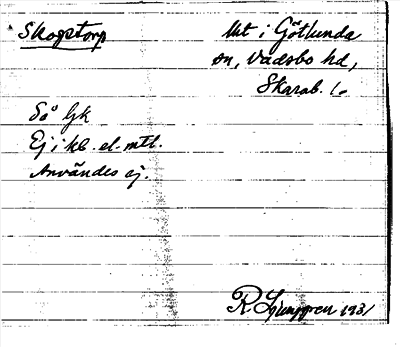 Skogstorp
Ut i Götlunda
sn, Vadsbo hd,
Skarab. l.
Så Gk
Ej i kb. el. mtl.
Användes ej.
R. Ljunggren 1931